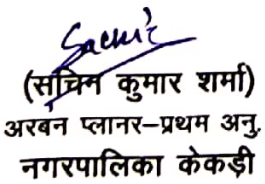 Sachin
(सचिन कुमार शर्मा)
अरबन प्लानर–प्रथम अनु.
नगरपालिका केकड़ी